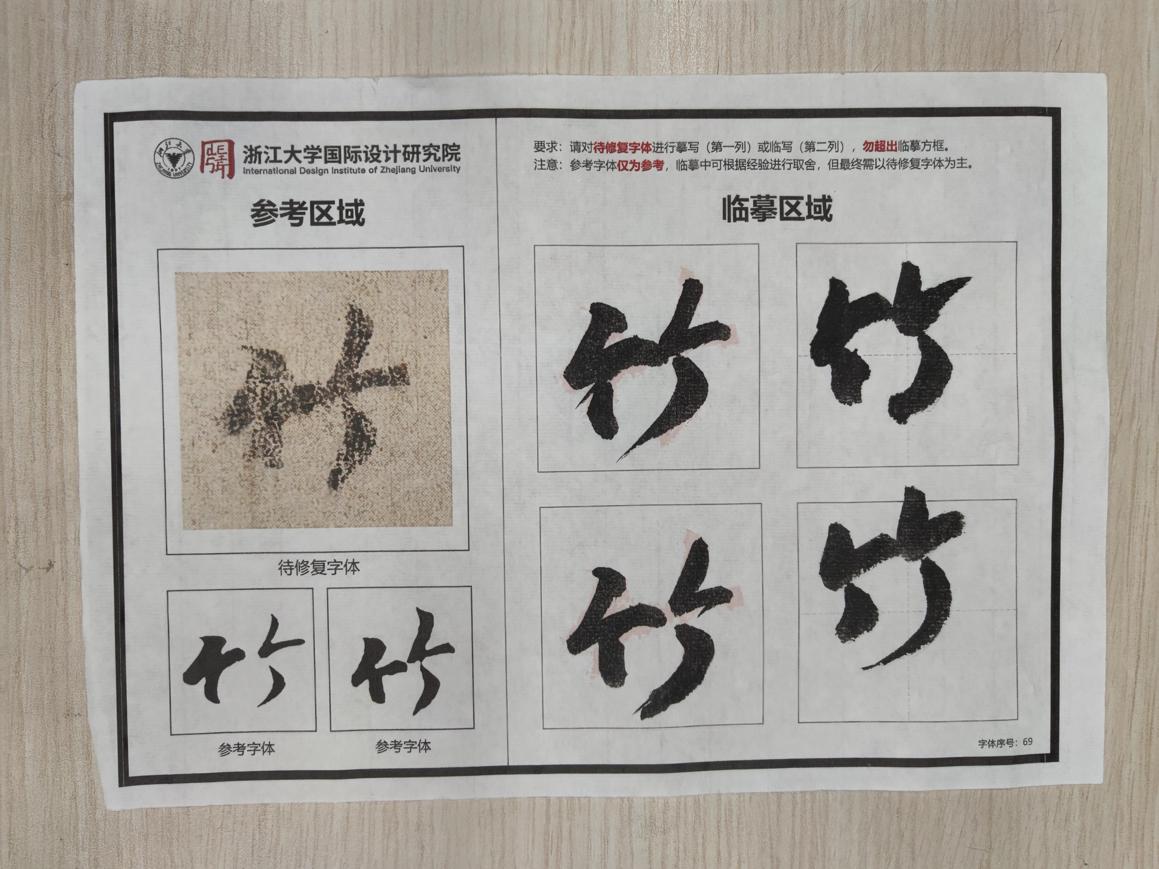 浙江大学国际设计研究院
International Design Institute of Zhejiang University
参考区域
竹
待修复字体
竹 竹
参考字体 参考字体
要求：请对待修复字体进行摹写（第一列）或临写（第二列），勿超出临摹方框。
注意：参考字体仅为参考，临摹中可根据经验进行取舍，但最终需以待修复字体为主。
临摹区域
竹 竹
竹 竹
字体序号：69